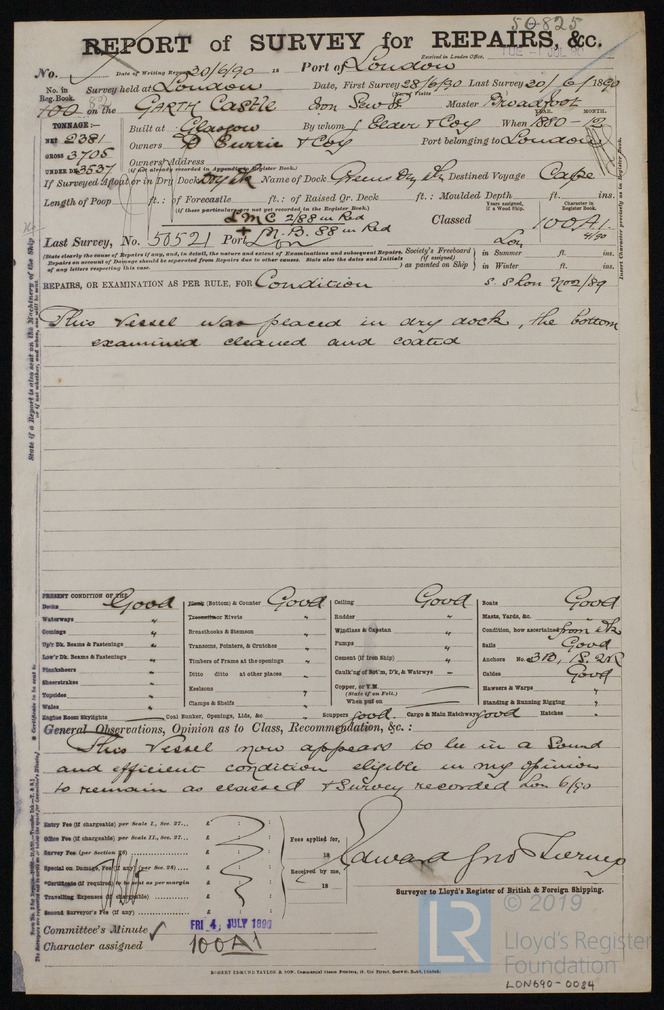 50825
REPORT of SURVEY for REPAIRS, &c.
Received in London Office,
No. Date of Writing Report 20/6/90 18 Port of London
No. in Reg. Book. Survey held at London Date, First Survey 28/6/90 Last Survey 20/6/1890
100 on the GARTH Castle Iron Scw Sr Master Broadfoot
TONNAGE:— Built at Glasgow By whom J Elder & Coy When 1880-10
YEAR. MONTH.
NET 2381
GROSS 3705 Owners D Currie & Coy Port belonging to London
UNDER DK 3537 Owners' Address
(if not already recorded in Appendix to Register Book.)
If Surveyed Afloat or in Dry Dock Dry Dk Name of Dock Greens Dry Dk Destined Voyage Cape
Length of Poop ft.: of Forecastle ft.: of Raised Qr. Deck ft.: Moulded Depth ft. ins.
(if these particulars are not yet recorded in the Register Book.)
LMC 2/88 in Red
+ N.B. 88 in Red
Classed 100A1
Years assigned, if a Wood Ship.
Character in Register Book.
Lon 4/90
Last Survey, No. 50521 Port Lon
(State clearly the cause of Repairs if any, and, in detail, the nature and extent of Examinations and subsequent Repairs. Repairs on account of Damage should be separated from Repairs due to other causes. State also the dates and Initials of any letters respecting this case.
Society's Freeboard (if assigned) as painted on Ship in Summer ft. ins.
in Winter ft. ins.
REPAIRS, OR EXAMINATION AS PER RULE, FOR Condition S. S Lon No 2/89
This Vessel was placed in dry dock, the bottom
examined cleaned and coated
PRESENT CONDITION OF THE
Decks Good
Waterways "
Comings "
Up'r Dk. Beams & Fastenings "
Low'r Dk. Beams & Fastenings "
Planksheers "
Sheerstrakes "
Topsides "
Wales "
Engine Room Skylights
Plank (Bottom) & Counter Good
Treenails or Rivets "
Breasthooks & Stemson "
Transoms, Pointers, & Crutches "
Timbers of Frame at the openings "
Ditto ditto at other places "
Keelsons
Clamps & Shelfs
Coal Bunker, Openings, Lids, &c.
Ceiling Good
Rudder "
Windlass & Capstan "
Pumps "
Cement (if Iron Ship) "
Caulk'ng of Bot'm, D'k, & Waterwys
Copper, or Y.M.
(State if on Felt.)
When put on
Scuppers Good. Cargo & Main Hatchways Good
Boats Good
Masts, Yards, &c. "
Condition, how ascertained from dk
Sails Good
Anchors No. 3B, 1S. 2K
Cables Good
Hawsers & Warps "
Standing & Running Rigging "
Hatches "
General Observations, Opinion as to Class, Recommendation, &c. :
This Vessel now appears to be in a Sound
and efficient condition eligible in my opinion
to remain as classed & Survey recorded Lon 6/90
Entry Fee (if chargeable) per Scale I., Sec. 27... £ : :
Office Fee (if chargeable) per Scale II., Sec. 27... £ : :
Survey Fee (per Section 28) £ : :
Special on Damage, Fee (if any) (per Sec. 28) £ : :
*Certificate (if required) to be sent as per margin
Travelling Expenses (if chargeable) £ : :
Second Surveyor's Fee (if any) £ : :
Fees applied for,
18
Received by me,
18
Edward Jno Tierney
Surveyor to Lloyd's Register of British & Foreign Shipping.
Committee's Minute FRI 4 JULY 1890
Character assigned 100A1
ROBERT EDMUND TAYLOR & SON
LR
© 2019
Lloyd's Register
Foundation
LON690-0084